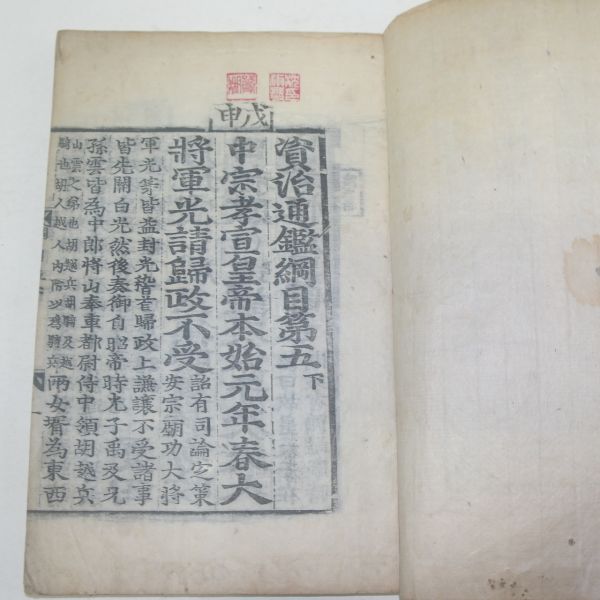 戊申
資治通鑑綱目第五下
中宗孝宣皇帝本始元年春大
將軍光請歸政不受
詔有司論定策
安宗廟功大將
軍光等皆益封光稽首歸政上謙讓不受諸事
皆先關白光然後奏御自昭帝時光子禹及兄
孫雲皆為中郎將山奉車都尉侍中領胡越兵
兩女壻為東西